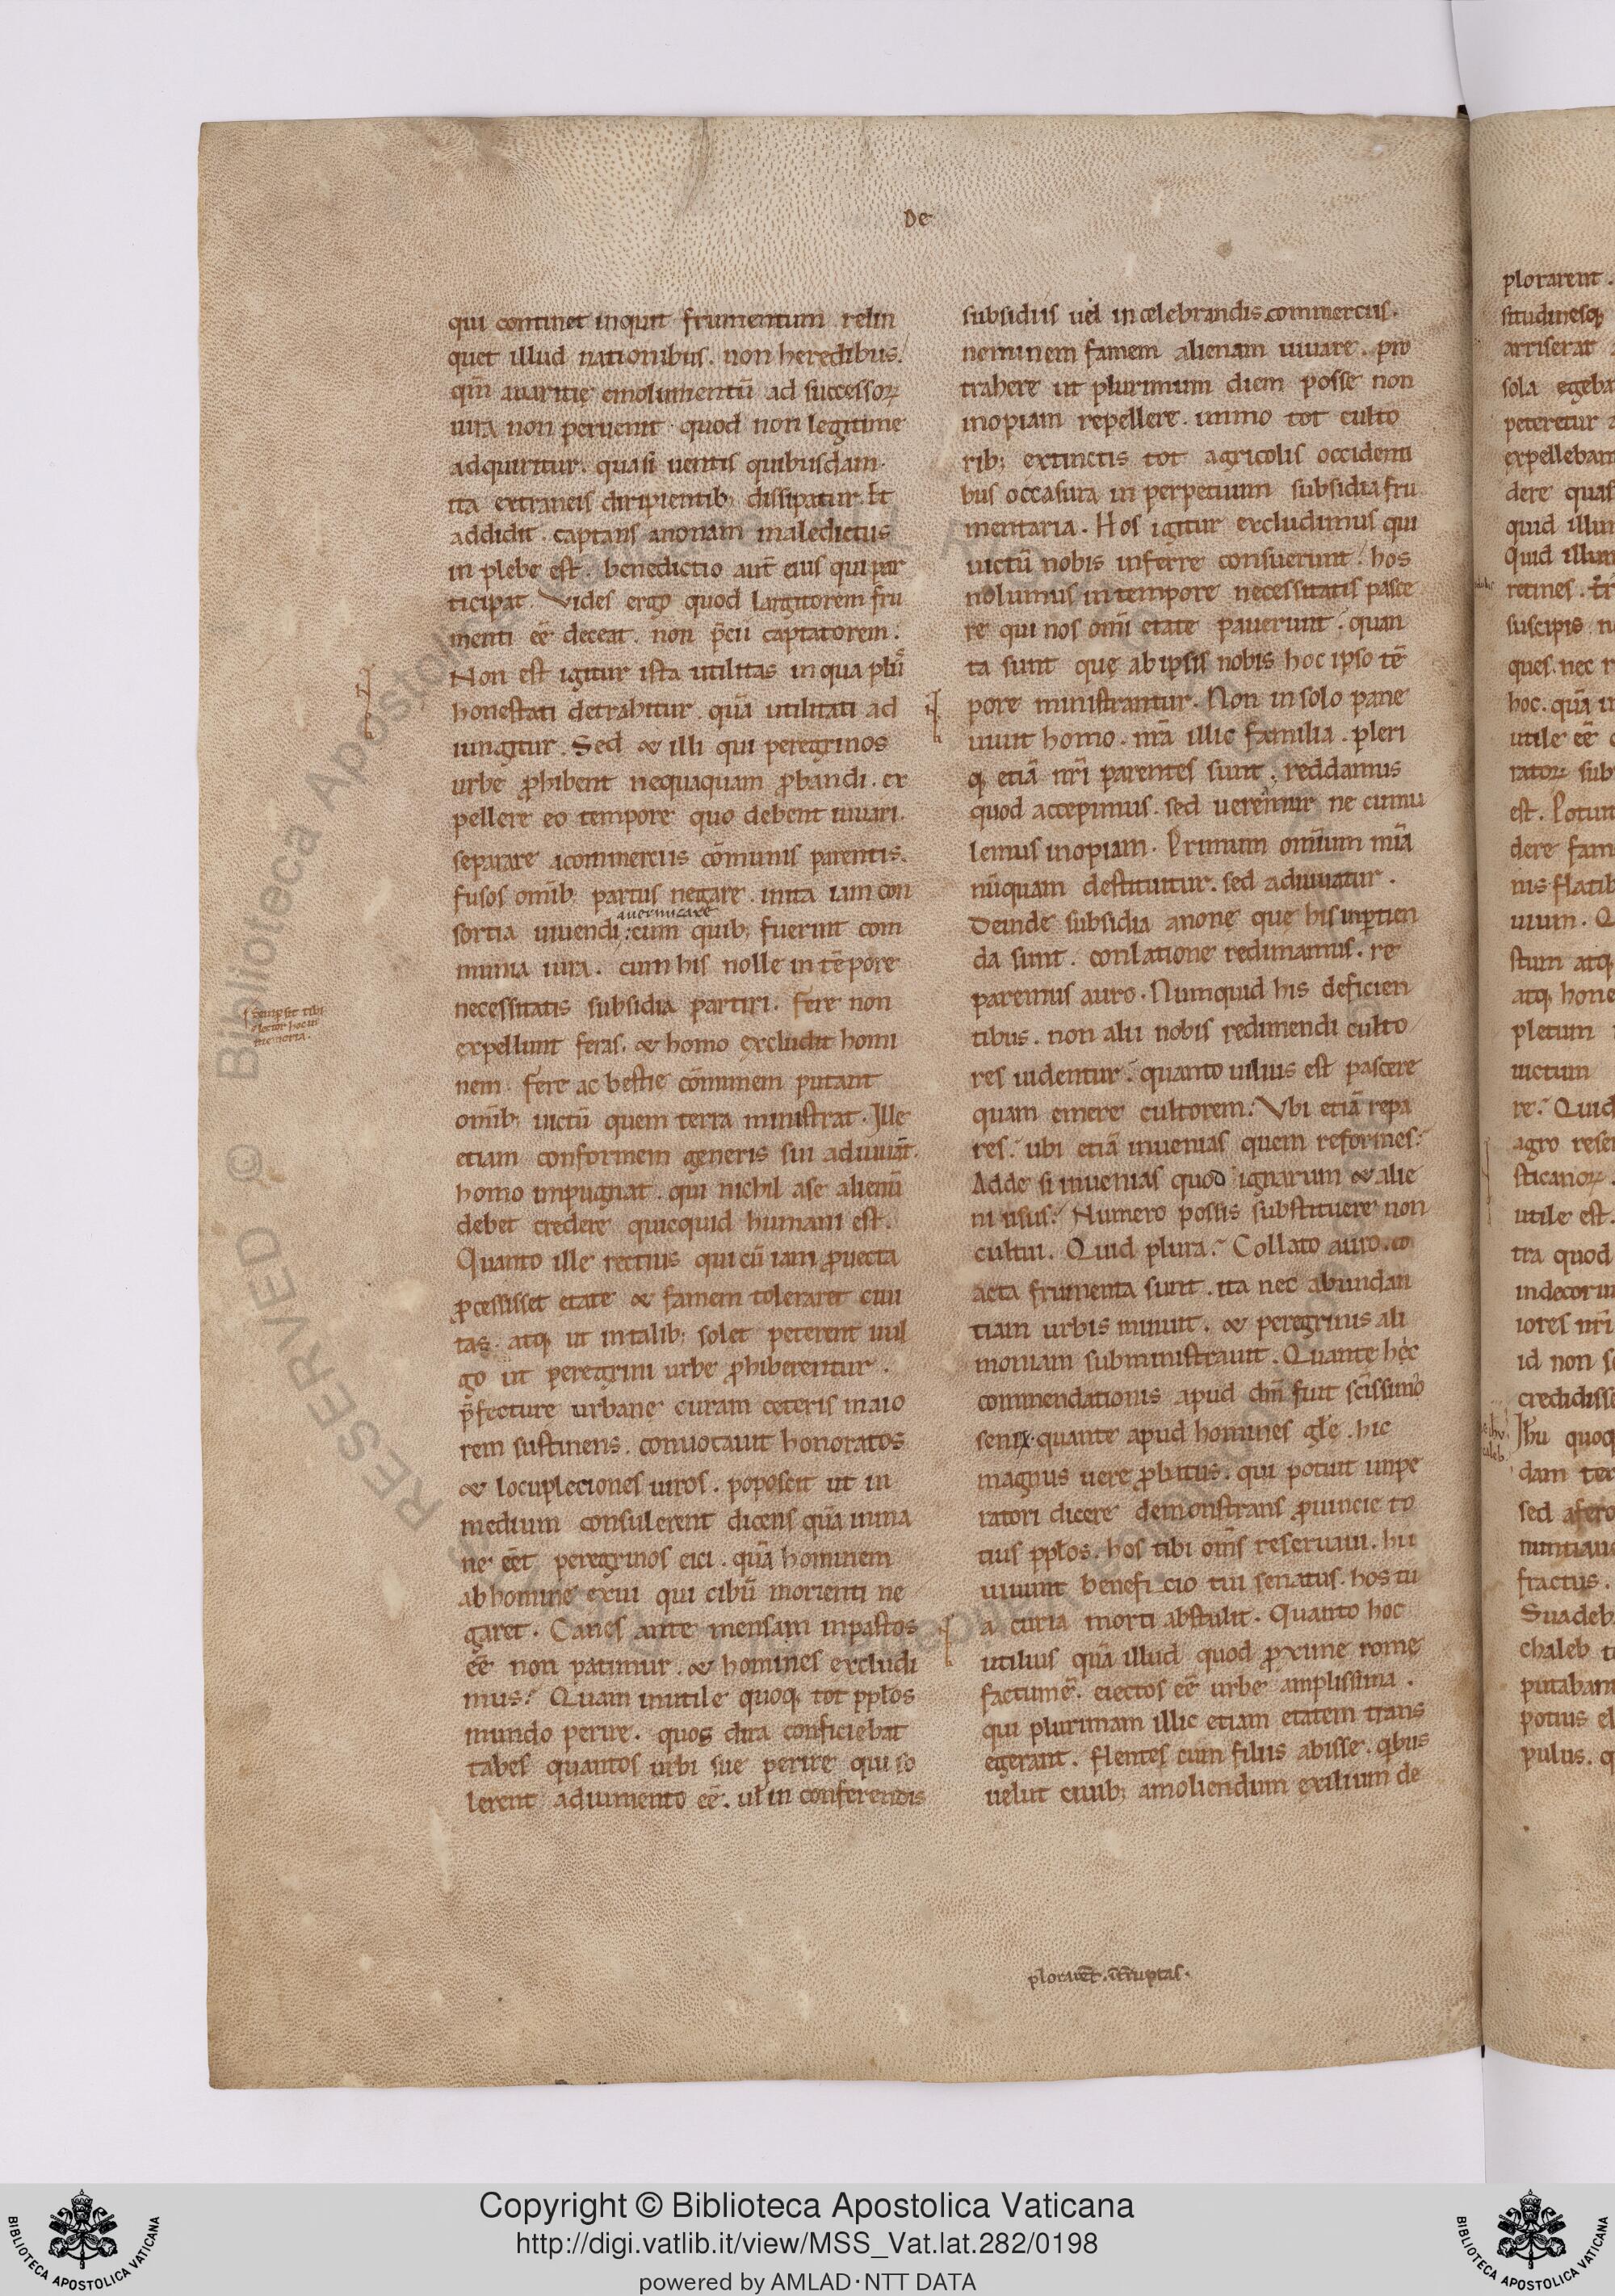 De
qui continet inquit frumentum relin
quet illud nationibus. non heredibus.
qm̄ auaritię emolumentū ad successoꝝ
iura non peruenit. quod non legitime
adquiritur. quasi uentis quibusdam.
ita extraneis diripientib; dissipatur. Et
addidit. captans anonam maledictus
in plebe est. benedictio aut̄ eius qui par
ticipat. Vides ergo quod largitorem fru
menti eē deceat. non p̄cii captatorem.
Non est igitur ista utilitas in qua plus
honestati detrahitur. quā utilitati ad
iungitur. Sed & illi qui peregrinos
urbe ꝓhibent nequaquam ꝓbandi. ex
pellere eo tempore quo debent iuuari.
separare acommerciis cōmunis parentis.
fusos omīb; partus negare. inita iam con
auerruncare
sortia uiuendi: cum quib; fuerint com
munia iura. cum his nolle in tēpore
necessitatis subsidia partiri. Fere non
expellunt feras. & homo excludit homi
nem. Fere ac bestie cōmunem putant
omīb; uictū quem terra ministrat. Ille
etiam conformem generis sui adiuuat.
homo impugnat. qui nichil ase alienū
debet credere quicquid humani est.
Quanto ille rectius qui cū iam ꝓuecta
ꝓcessisset etate & famem toleraret ciui
tas. atq; ut intalib; solet peterent uul
go ut peregrini urbe ꝓhiberentur.
p̄fecture urbane curam ceteris maio
rem sustinens. conuocauit honoratos
& locupleciones uiros. poposcit ut in
medium consulerent dicens quā inma
ne eēt peregrinos eici. quā hominem
ab homine exui qui cibū morienti ne
garet. Canes ante mensam inpastos
eē non patimur. & homines excludi
mus? Quam inutile quoq; tot pplos
mundo perire. quos dira conficiebat
tabes quantos urbi sue perire qui so
lerent adiumento eē. ul in conferendis
Semp sit tibi
lector hoc in
memoria.
subsidiis uel in celebrandis commerciis.
neminem famem alienam iuuare. pro
trahere ut plurimum diem posse non
inopiam repellere. immo tot culto
rib; extinctis tot agricolis occidenti
bus occasura in perpetuum subsidia fru
mentaria. Hos igitur excludimus qui
uictū nobis inferre consuerunt. hos
nolumus in tempore necessitatis pasce
re qui nos omī etate pauerunt. quan
ta sunt quę ab ipsis nobis hoc ipso tē
pore ministrantur. Non in solo pane
uiuit homo. nr̄a illic familia. pleri
q; etiā nr̄i parentes sunt. reddamus
quod accepimus. sed ueremur ne cumu
lemus inopiam. Primum omnium mīa
nūquam destituitur. sed adiuuatur.
Deinde subsidia anonę que his inpertien
da sunt. conlatione redimamus. re
paremus auro. Numquid his deficien
tibus. non alii nobis redimendi culto
res uidentur? quanto uilius est pascere
quam emere cultorem? Vbi etiā repa
res? ubi etiā inuenias quem reformes?
Adde si inuenias quod ignarum & alie
ni usus? Numero possis substituere non
cultui. Quid plura? Collato auro. co
acta frumenta sunt. ita nec abundan
tiam urbis minuit. & peregrinis ali
moniam subministrauit. Quantę hęc
commendationis apud dm̄ fuit scīssimo
senix. quante apud homines glē. hic
magnus uere ꝓbatus. qui potuit impe
ratori dicere demonstrans ꝓuincie to
tius pplos. hos tibi omīs reseruaui. hii
uiuunt beneficio tui senatus. hos tu
a curia morti abstulit. Quanto hoc
utilius quā illud quod ꝓxime rome
factum ē. eiectos eē urbe amplissima.
qui plurimam illic etiam etatem trans
egerant. flentes cum filiis abisse. qbus
uelut ciuib; amoliendum exilium de
plorarent.
situdinesq;
arriserat
peteretur
dere quas
ques. nec
hoc. quā
utile eē
est.
nis
uium.
stum atq;
pletum
uictum
re? Quid
agro
utile est.
tra quod
id non
Jhu quoq;
fractus.
chaleb
pulus.
RESERVED © Biblioteca Apostolica
Copyright © Biblioteca Apostolica Vaticana
http://digi.vatlib.it/view/MSS_Vat.lat.282/0198
powered by AMLAD·NTT DATA
BIBLIOTECA APOSTOLICA VATICANA
BIBLIOTECA APOSTOLICA VATICANA